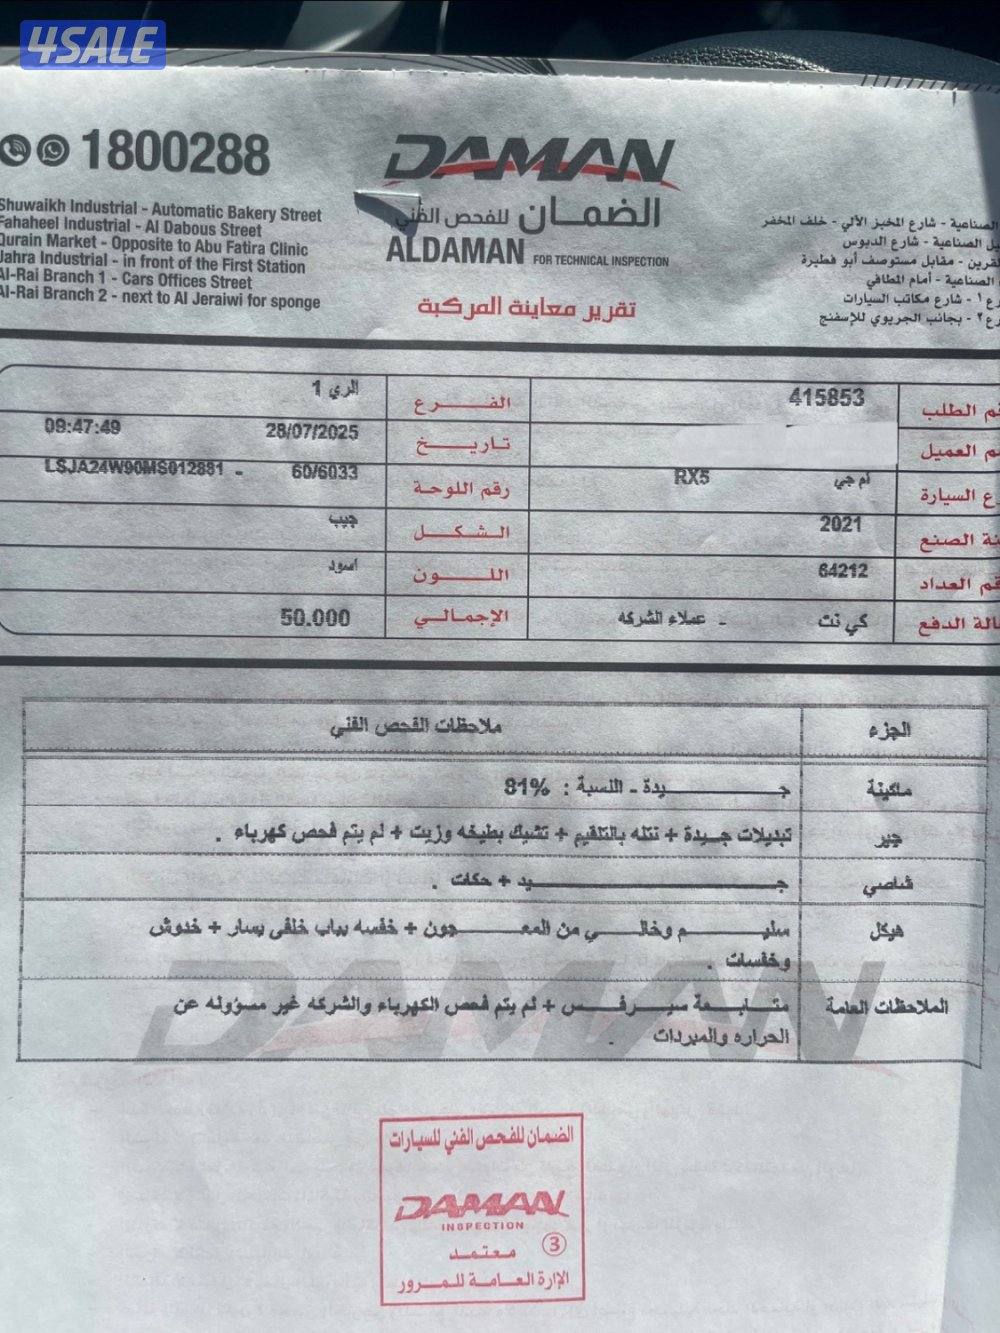 4SALE
1800288
DAMAN
الضمان للفحص الفني
ALDAMAN FOR TECHNICAL INSPECTION
تقرير معاينة المركبة
Shuwaikh Industrial - Automatic Bakery Street
Fahaheel Industrial - Al Dabous Street
Qurain Market - Opposite to Abu Fatira Clinic
Jahra Industrial - in front of the First Station
Al-Rai Branch 1 - Cars Offices Street
Al-Rai Branch 2 - next to Al Jeraiwi for sponge
الصناعية - شارع المخبز الآلي - خلف المخفر
الصناعية - شارع الدبوس
القرين - مقابل مستوصف أبو فطيرة
الصناعية - أمام المطافي
١ - شارع مكاتب السيارات
٢ - بجانب الجريوي للإسفنج
قم الطلب 415853 الفرع الري 1
م العميل تاريخ 28/07/2025 09:47:49
ع السيارة ام جي RX5 رقم اللوحة 60/6033 - LSJA24W90MS012881
نة الصنع 2021 الشكل جيب
قم العداد 64212 اللون اسود
الة الدفع كي نت - عملاء الشركه الإجمالي 50.000
الجزء ملاحظات الفحص الفني
ماكينة جيدة - النسبة : 81%
جير تبديلات جيدة + نتله بالتلقيم + تشيك بطيخه وزيت + لم يتم فحص كهرباء .
شاصي جيد + حكات .
هيكل سليم وخالي من المعجون + خفسه بباب خلفي يسار + خدوش
وخفسات .
الملاحظات العامة متابعة سيرفس + لم يتم فحص الكهرباء والشركه غير مسؤوله عن
الحراره والمبردات .
DAMAN
الضمان للفحص الفني للسيارات
DAMAN
INSPECTION
معتمد 3
الإرارة العامة للمرور